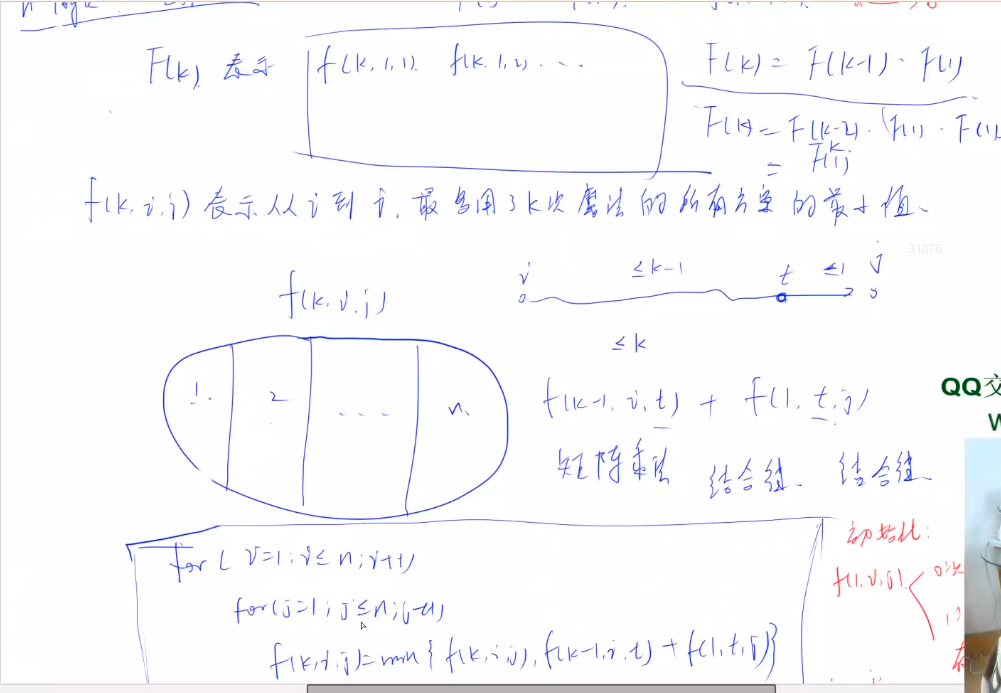 F(k) 表示 f(k,1,1). f(k,1,2)...
F(k) = F(k-1)·F(1)
F(k) = F(k-2)·(F(1)·F(1)
= F(1)^k
f(k,i,j) 表示从 i 到 j, 最多用了k次魔法的所有方案的最小值、
31076
i ≤k-1 t ≤1 j
f(k,i,j)
≤k
1. 2 ... n.
f(k-1,i,t) + f(1,t,j)
QQ交
W
矩阵乘法 结合律、结合律、
for( i=1;i≤n;i++)
初始化:
for(j=1;j≤n;j++)
f(1,i,j)
f(k,i,j)=min{f(k,i,j),f(k-1,i,t)+f(1,t,j)}